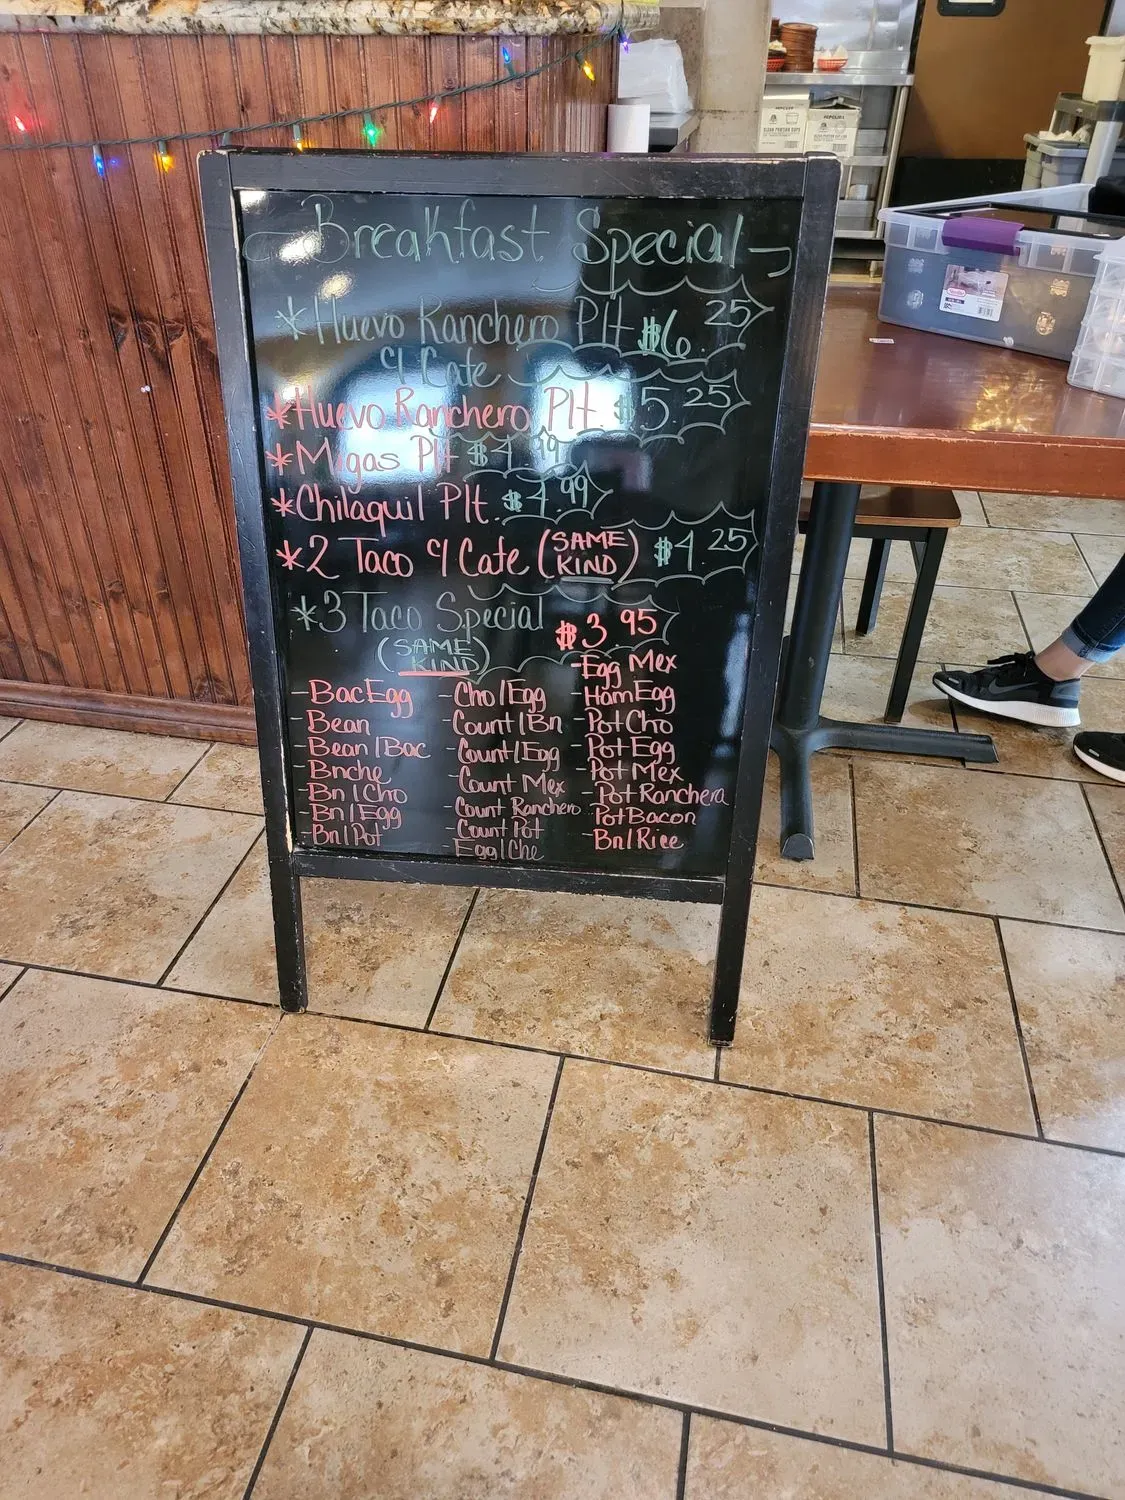 Breakfast Special
*Huevo Ranchero Plt $6.25
y Cafe
*Huevo Ranchero Plt. $5.25
*Migas Plt $4.99
*Chilaquil Plt. $4.99
*2 Taco y Cafe (SAME KIND) $4.25
*3 Taco Special $3.95
(SAME KIND)
-BacEgg
-Bean
-Bean/Bac
-Bnche
-Bn/Cho
-Bn/Egg
-Bn/Pot
-Cho/Egg
-Count/Bn
-Count/Egg
-Count Mex
-Count Ranchero
-Count Pot
-Egg/Che
-Egg Mex
-HamEgg
-PotCho
-PotEgg
-Pot Mex
-Pot Ranchera
-PotBacon
-Bn/Rice